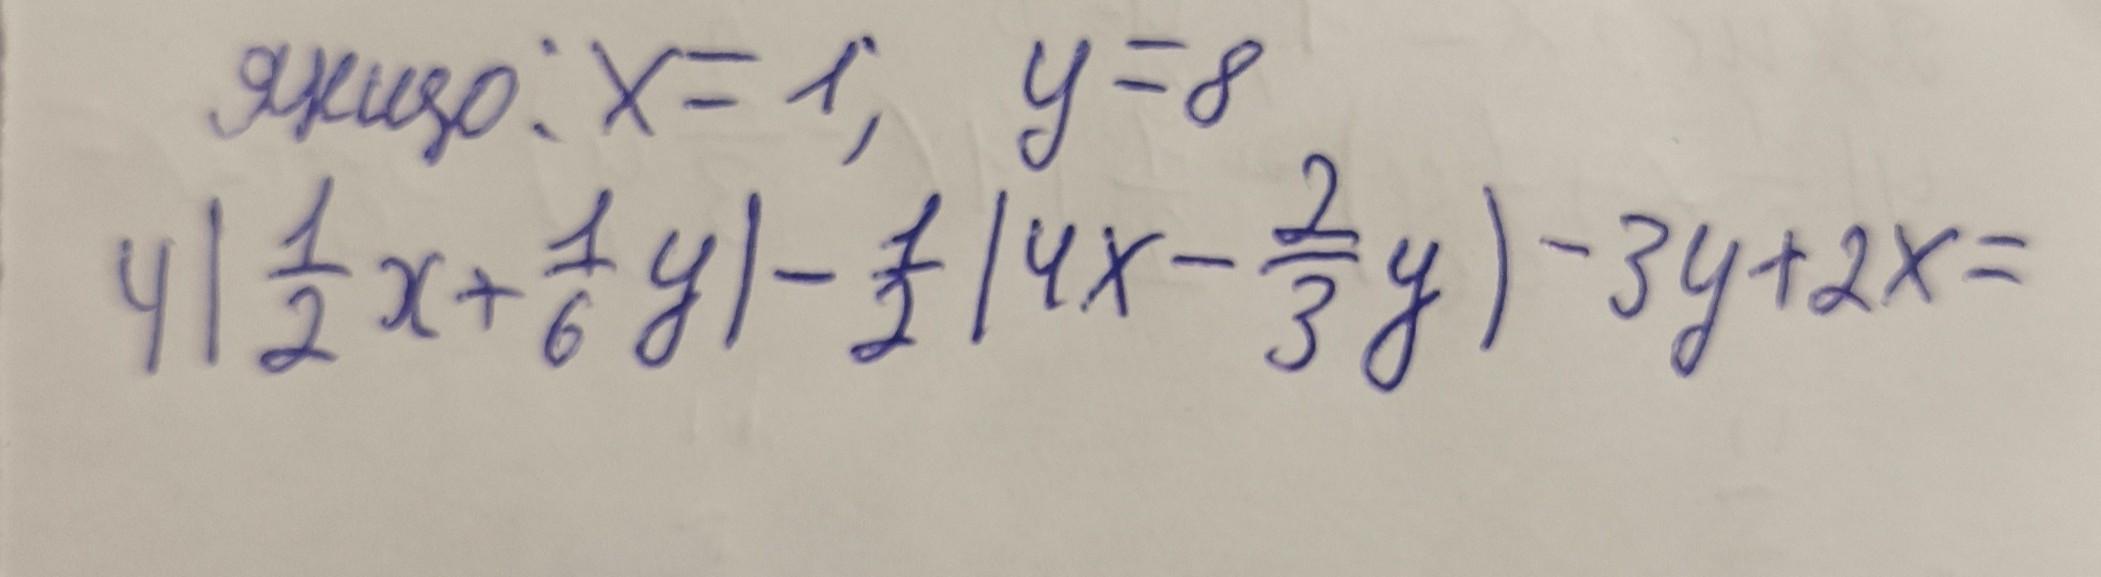 якщо: x = 1; y = 8
4(1/2 x + 1/6 y) - 1/2 (4x - 2/3 y) - 3y + 2x =